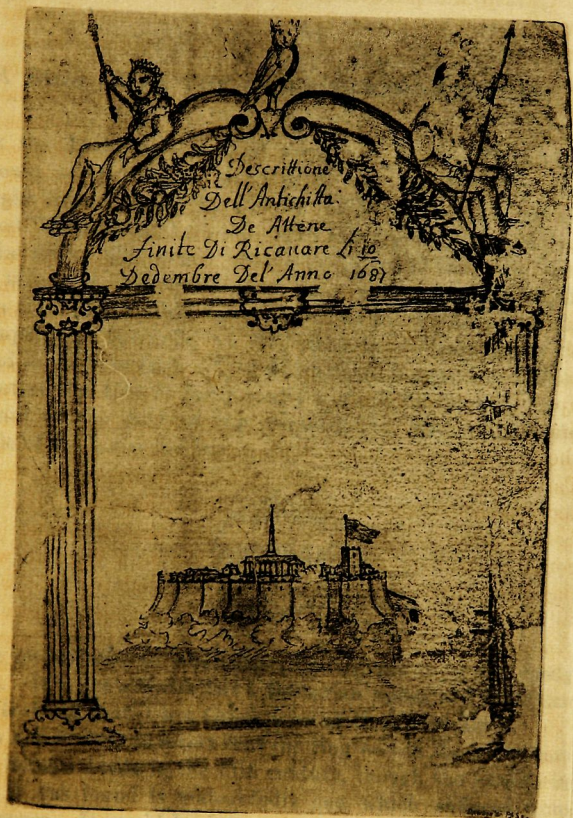 Descrittione
Dell' Antichitta
De Attene
finite Di Ricauare li 10
Dedembre Del' Anno 1687